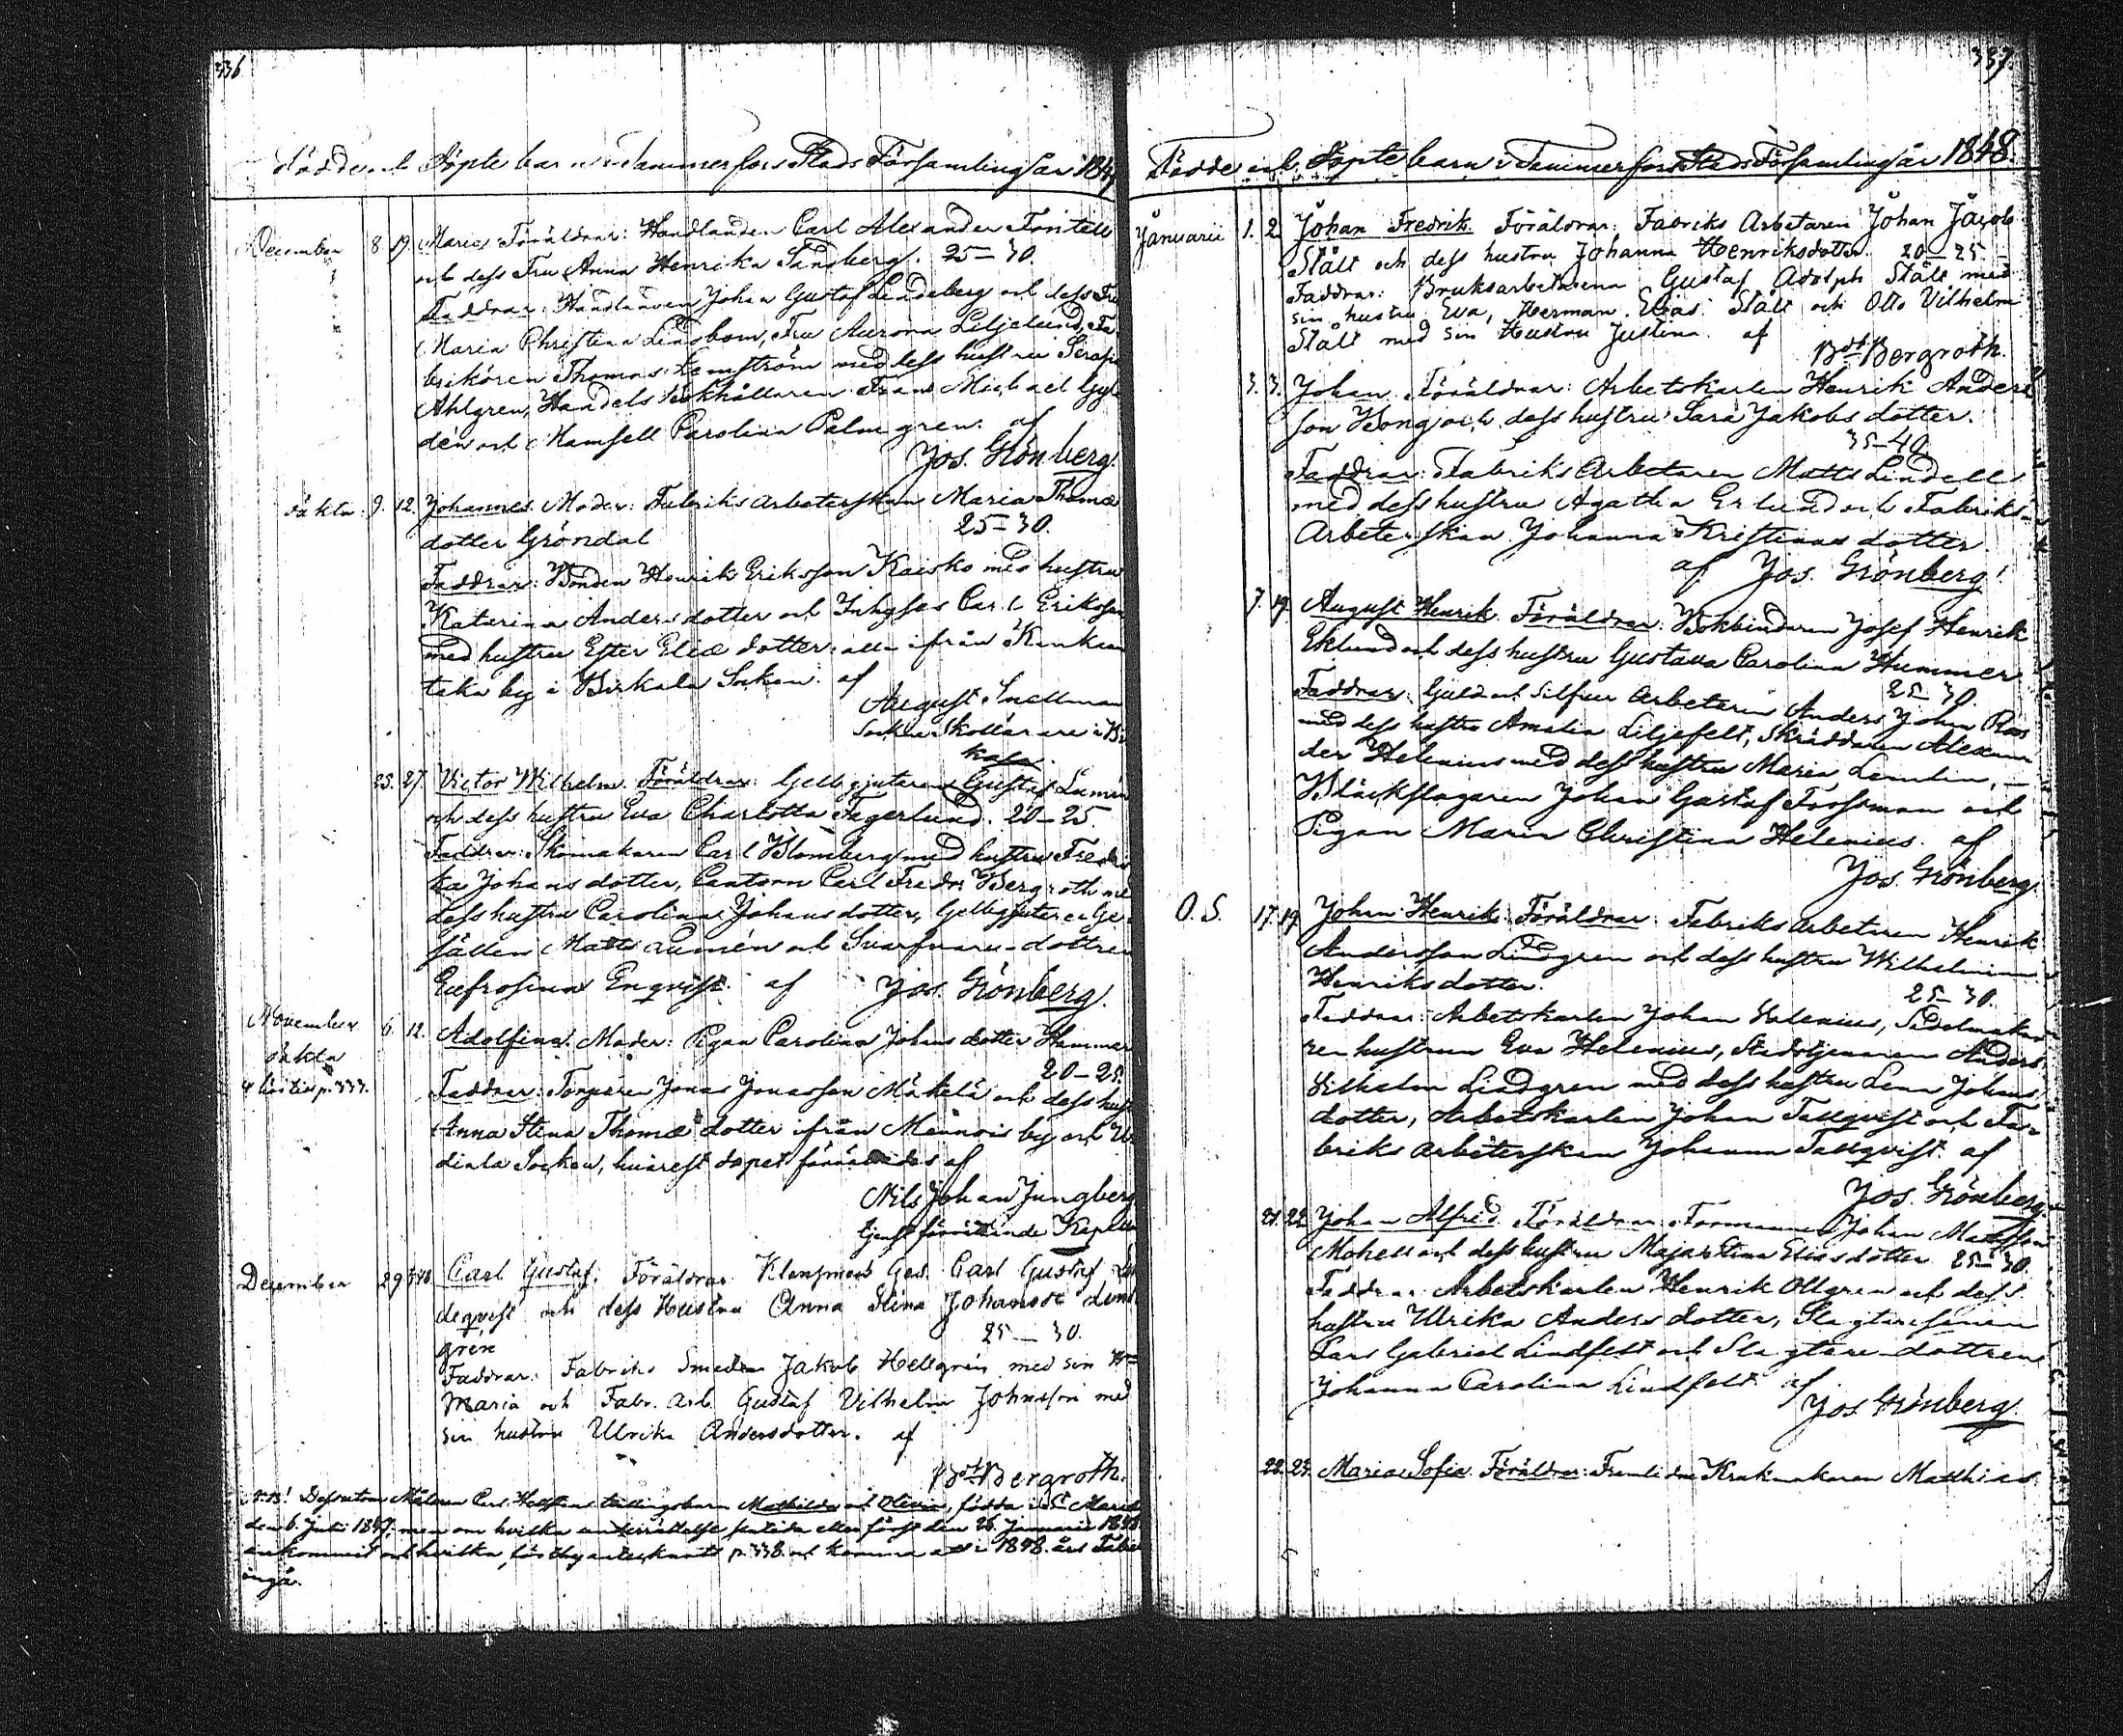 336
Födde och Döpte barn i Tammerfors Stads Församling år 1847
December 8 19. Maria Föräldrar: Handlanden Carl Alexander Fontell
och dess Fru Anna Henrika Sandberg. 25–30.
Faddrar: Handlanden Johan Gustaf Lindeberg och dess Fru
Maria Christina Lindbom, Fru Aurora Liljelund, Fa-
brikören Thomas Lemström med dess hustru Serafi
Ahlgren, Handels Bokhållaren Frans Michael Gyl
dén och Mamsell Carolina Palmgren. af
Jos. Grönberg.
oäkta 9. 12. Johannes. Moder: Fabriks arbeterskan Maria Thomæ
25–30.
dotter Gröndal
Faddrar: Bonden Henrik Eriksson Kaisko med hustru
Katarina Andersdotter och Inhyses Carl Eriksson
med hustru Ester Eliæ dotter, alla ifrån
by i Birkala Socken. af
August Snellman
Sockne Skollärare i Bir
kala.
25. 27. Victor Wilhelm. Föräldrar: Gelbgjutaren Gustaf Lumén
och dess hustru Eva Charlotta Fagerlund. 20–25.
Faddrar: Skomakaren Carl Blomberg med hustru Fredri
ka Johansdotter, Cantorn Carl Fredr. Bergroth med
dess hustru Carolina Johansdotter, Gelbgjutare Ge-
sällen Matts Lumén och Svarfvare-dottren
Eufrosina Enqvist. af Jos. Grönberg.
November 6. 12. Adolfina. Moder: Pigan Carolina Johansdotter Hammar
oäkta 20–25.
p. 333. Faddrar: Torparen Jonas Jonasson Mäkelä och dess hust
Anna Stina Thomæ dotter ifrån Männois by och Ur
diala Socken, hvarest dopet förrättades af
Nils Johan Jungberg
tjenstförrättande Kaplan
December 29 Carl Gustaf. Föräldrar Klensmeds Ges. Carl Gustaf Lin
deqvist och dess Hustru Anna Stina Johansdr Lind
25–30.
gren
Faddrar: Fabriks Smeden Jakob Hellgren med sin Hu
Maria och Fabr. arb. Gustaf Vilhelm Johnsson med
sin hustru Ulrika Andersdotter. af
Bergroth.
N.B! Dessutom Målaren Carl tvillingsbarn Mathilda och Olivia, födda i S:t Marie
den 6 Juli 1847, men om hvilka underrättelse först den 26 Januarii 1848
ankommit och hvilka, här antecknats p. 338. och komma att i 1848 års Tabell
ingå.
337.
Födde och Döpte barn i Tammerfors Stads Församling år 1848.
Januarii 1. 2. Johan Fredrik. Föräldrar: Fabriks Arbetaren Johan Jacob
Stålt och dess hustru Johanna Henriksdotter. 20–25.
Faddrar: Bruksarbetarena Gustaf Adolph Stålt med
sin hustru Eva, Herman Elias Stålt och Otto Vilhelm
Stålt med sin Hustru Justina. af
Bergroth.
3. 3. Johan. Föräldrar: Arbetskarlen Henrik Anders
son Bong och dess hustru Sara Jakobsdotter.
35–40.
Faddrar: Fabriks Arbetaren Matts Lindell
med dess hustru Agatha Erlund och Fabriks-
Arbeterskan Johanna Kristiansdotter
af Jos. Grönberg.
7. 19. August Henrik. Föräldrar: Bokbindaren Josef Henrik
Eklund och dess hustru Gustava Carolina Hummer
25–30.
Faddrar: Guld och Silfver Arbetaren Anders Johan Roos
med dess hustru Amalia Liljefelt, Skräddaren Alexan
der Helenius med dess hustru Maria Lemlin,
Bläckslagaren Johan Gustaf Forssman och
Pigan Maria Christina Helenius. af
Jos. Grönberg.
O. S. 17. 19. Johan Henrik. Föräldrar: Fabriks arbetaren Henrik
Andersson Lindgren och dess hustru Wilhelmina
Henriksdotter.
25–30.
Faddrar: Arbetskarlen Johan Salenius, Sadelmaka-
re hustrun Eva Helenius, Stadstjenaren Anders
Wilhelm Lindgren med dess hustru Lena Johans
dotter, Arbetskarlen Johan Tallqvist och Fa-
briks arbeterskan Johanna Tallqvist. af
Jos. Grönberg.
21. 22. Johan Alfred. Föräldrar: Formannen Johan Matsson
Mohell och dess hustru Maja Stina Eliasdotter. 25–30.
Faddrar: Arbetskarlen Henrik Ollgren och dess
hustru Ulrika Andersdotter, Slagtaresonen
Lars Gabriel Lindfelt och Slagtare-dottren
Johanna Carolina Lindfelt. af
Jos. Grönberg.
22. 23. Maria Sofia. Föräldrar: Krukmakaren Matthias